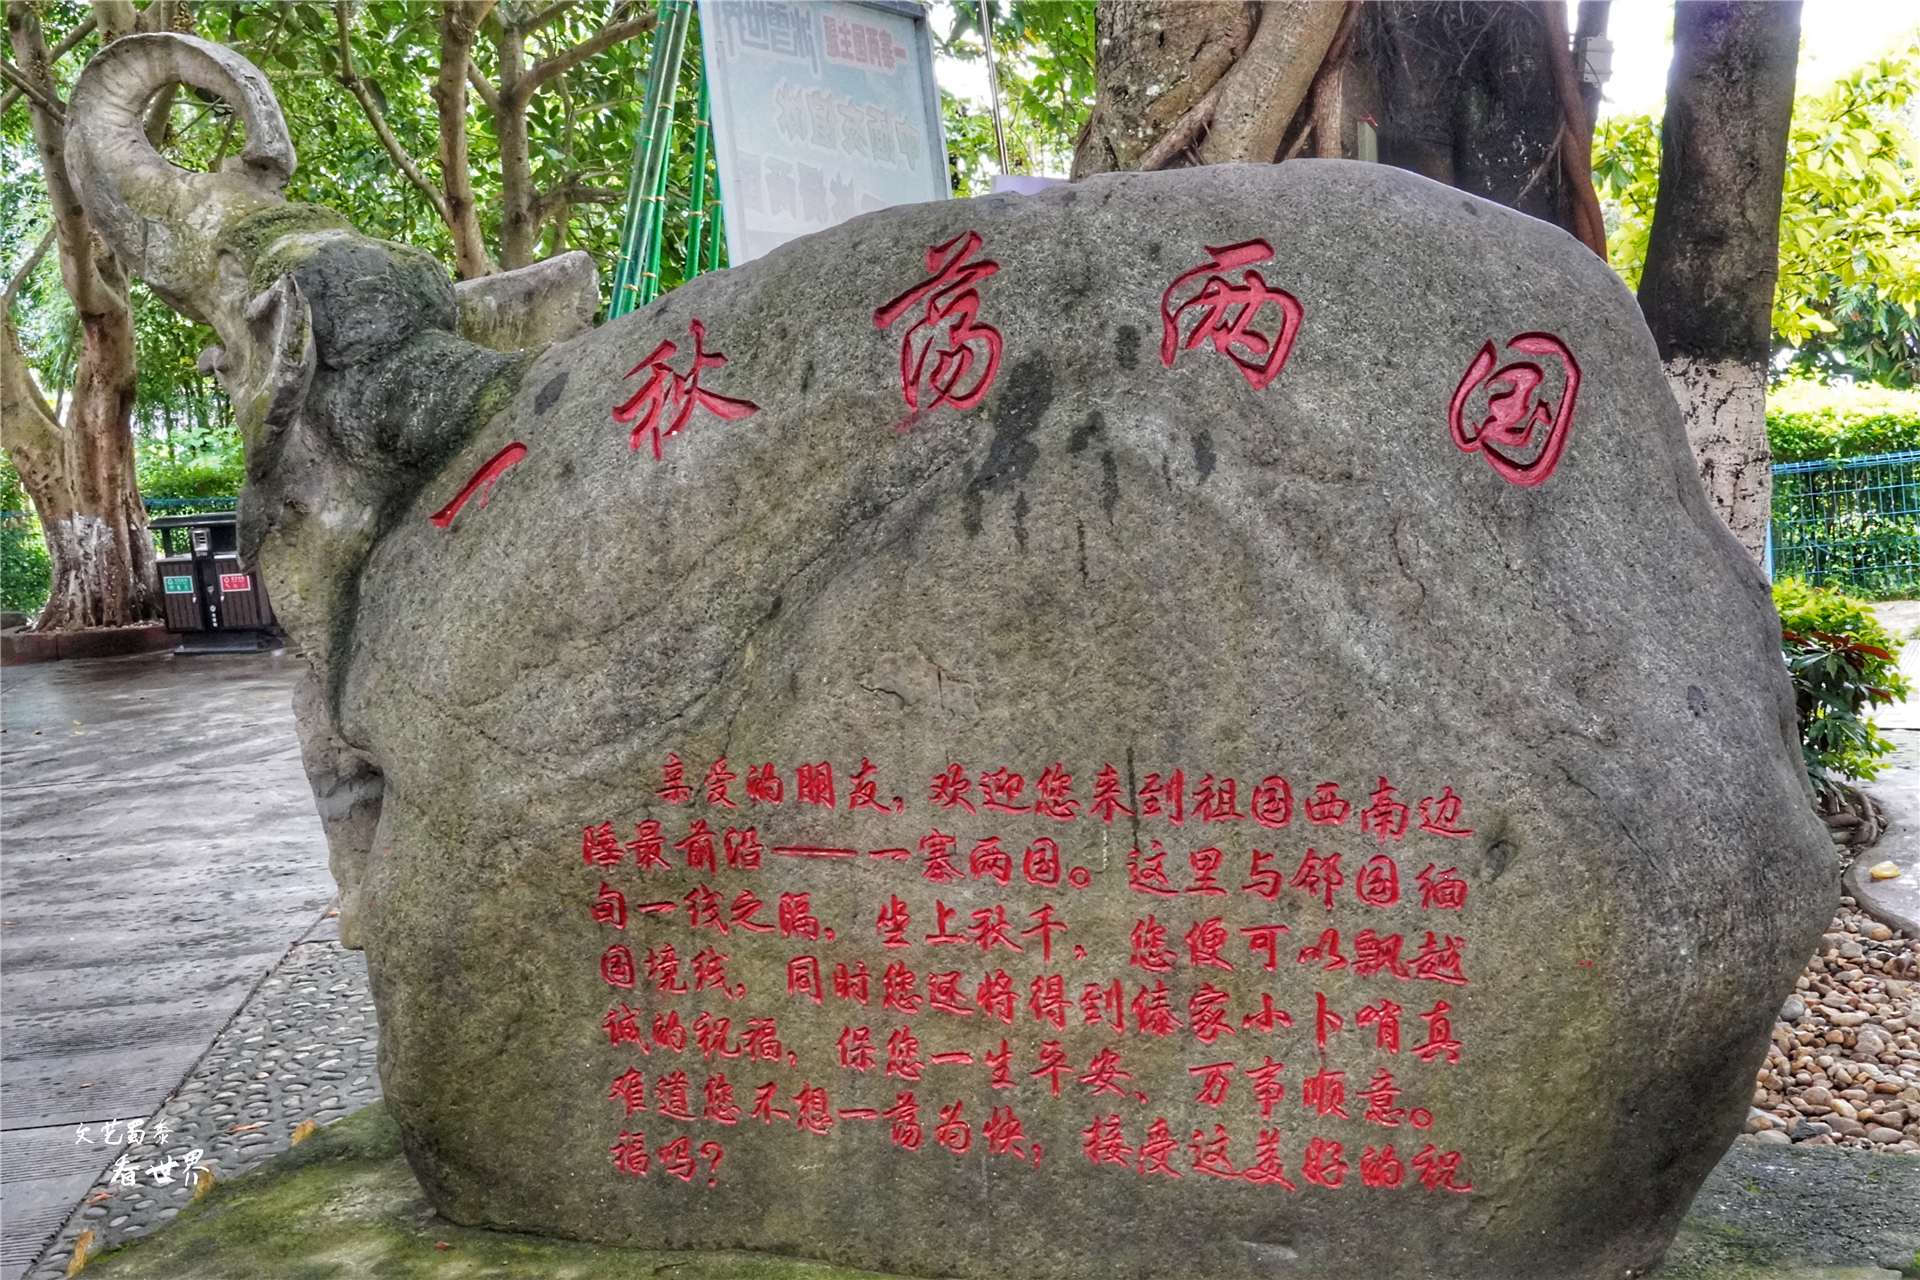 一秋荡两国
亲爱的朋友，欢迎您来到祖国西南边
陲最前沿——一寨两国。这里与邻国缅
甸一线之隔，坐上秋千，您便可以飘越
国境线，同时您还将得到傣家小卜哨真
诚的祝福，保您一生平安、万事顺意。
难道您不想一荡为快，接受这美好的祝
福吗？
文艺蜀黍
看世界